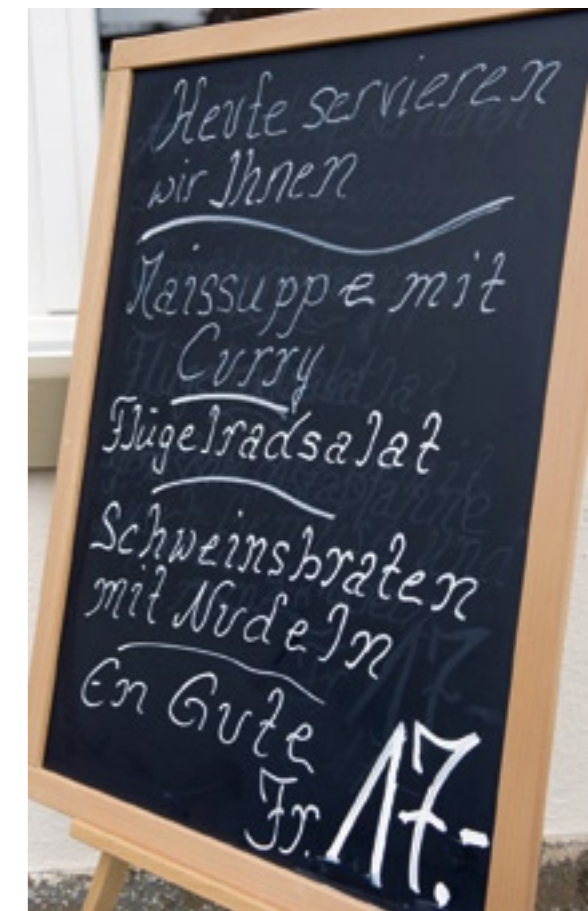 Heute servieren
wir Ihnen
Maissuppe mit
Curry
Flügelradsalat
Schweinsbraten
mit Nudeln
En Gute
Fr. 17.-